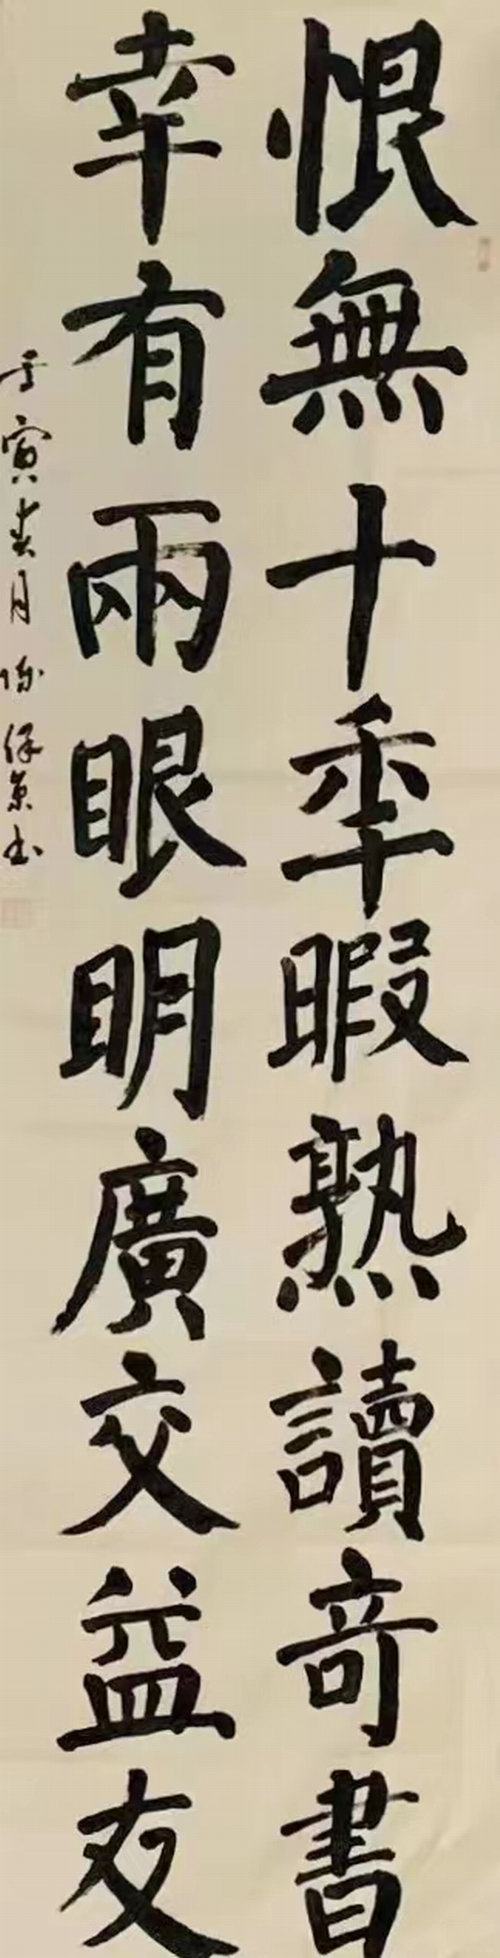 恨無十年暇熟讀奇書
幸有兩眼明廣交益友
壬寅春月 保京书